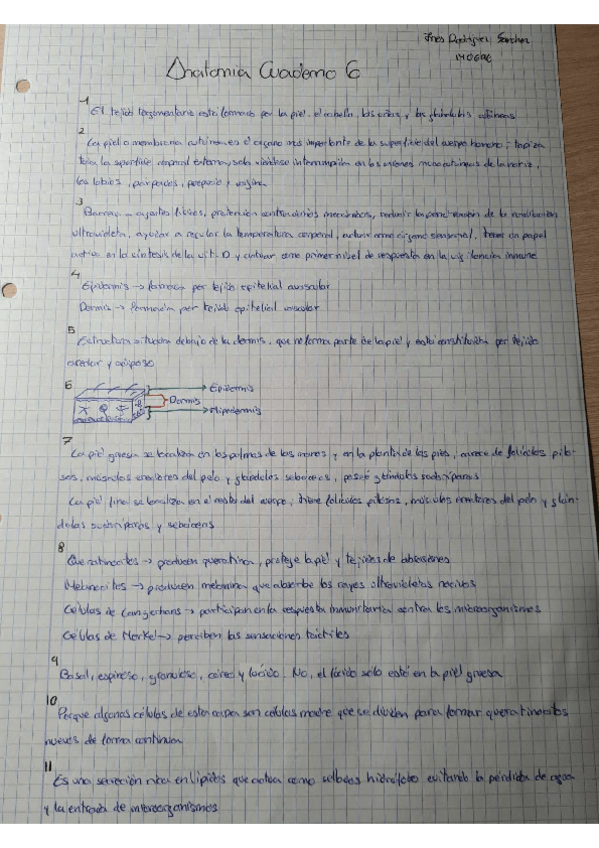 Inés Rodríguez Sánchez
Anatomia Cuaderno 6
1
El tejido tegumentario está formado por la piel, el cabello, las uñas y las glándulas
2
La piel o membrana cutánea es el órgano más importante de la superficie del cuerpo humano; tapiza
toda la superficie corporal externa, solo viéndose interrumpida en los orificios mucocutáneos de la nariz,
los labios, párpados, prepucio y vagina
3
Barrera agentes físicos, protección contra daños mecánicos, reducir la penetración de la radiación
ultravioleta, ayudar a regular la temperatura corporal, actuar como órgano sensorial, tener un papel
activo en la síntesis de la vit. D y actuar como primer nivel de respuesta en la vigilancia inmune
4
Epidermis → formada por tejido epitelial avascular
Dermis → formación por tejido epitelial vascular
5
Estructura situada debajo de la dermis, que no forma parte de la piel y está constituida por tejido
areolar y adiposo
6
→ Epidermis
Dermis
→ Hipodermis
7
La piel gruesa se localiza en las palmas de las manos y en la planta de los pies, carece de folículos pilo-
sos, músculos erectores del pelo y glándulas sebáceas, posee glándulas sudoríparas
La piel fina se localiza en el resto del cuerpo, tiene folículos pilosos, músculos erectores del pelo y glán-
dulas sudoríparas y sebáceas
8
Queratinocitos → producen queratina, protege la piel y tejidos de abrasiones
Melanocitos → producen melanina que absorbe los rayos ultravioletas nocivos
Células de Langerhans → participan en la respuesta inmunitaria contra los microorganismos
Células de Merkel → perciben las sensaciones táctiles
9
Basal, espinoso, granuloso, córneo y lúcido. No, el lúcido solo está en la piel gruesa
10
Porque algunas células de esta capa son células madre que se dividen para formar queratinocitos
nuevos de forma continua
11
Es una secreción rica en lípidos que actúa como sellador hidrófobo evitando la pérdida de agua
y la entrada de microorganismos